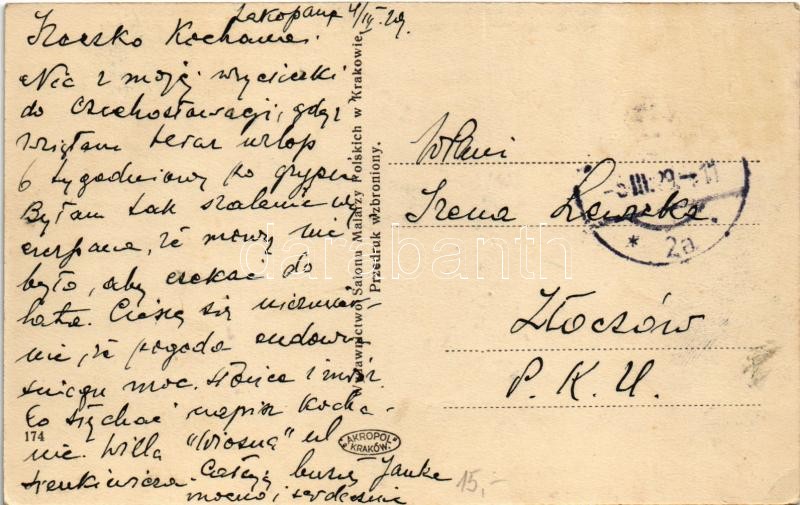 Zakopane 4/III. 29.
Kochana.
Nic z mojej wycieczki
do Czechosłowacji, gdyż
wzięłam teraz urlop
6 tygodniowy po grypie
Byłam tak szalenie wy
czerpana, że mowy nie
było, aby czekać do
lata. Cieszę się niezmier-
nie, że pogoda cudowna
śniegu moc. słońce i mróz.
Co słychać napisz Kocha-
nie. Willa "Wiosna" ul
Sienkiewicza. Całuję buzię Janka
mocno i serdecznie
174
Wydawnictwo Salonu Malarzy Polskich w Krakowie.
Przedruk wzbroniony.
"AKROPOL"
KRAKÓW.
WPani
Irena
Złoczów
P. K. U.
III. 29
* 2a
15,-
darabanth